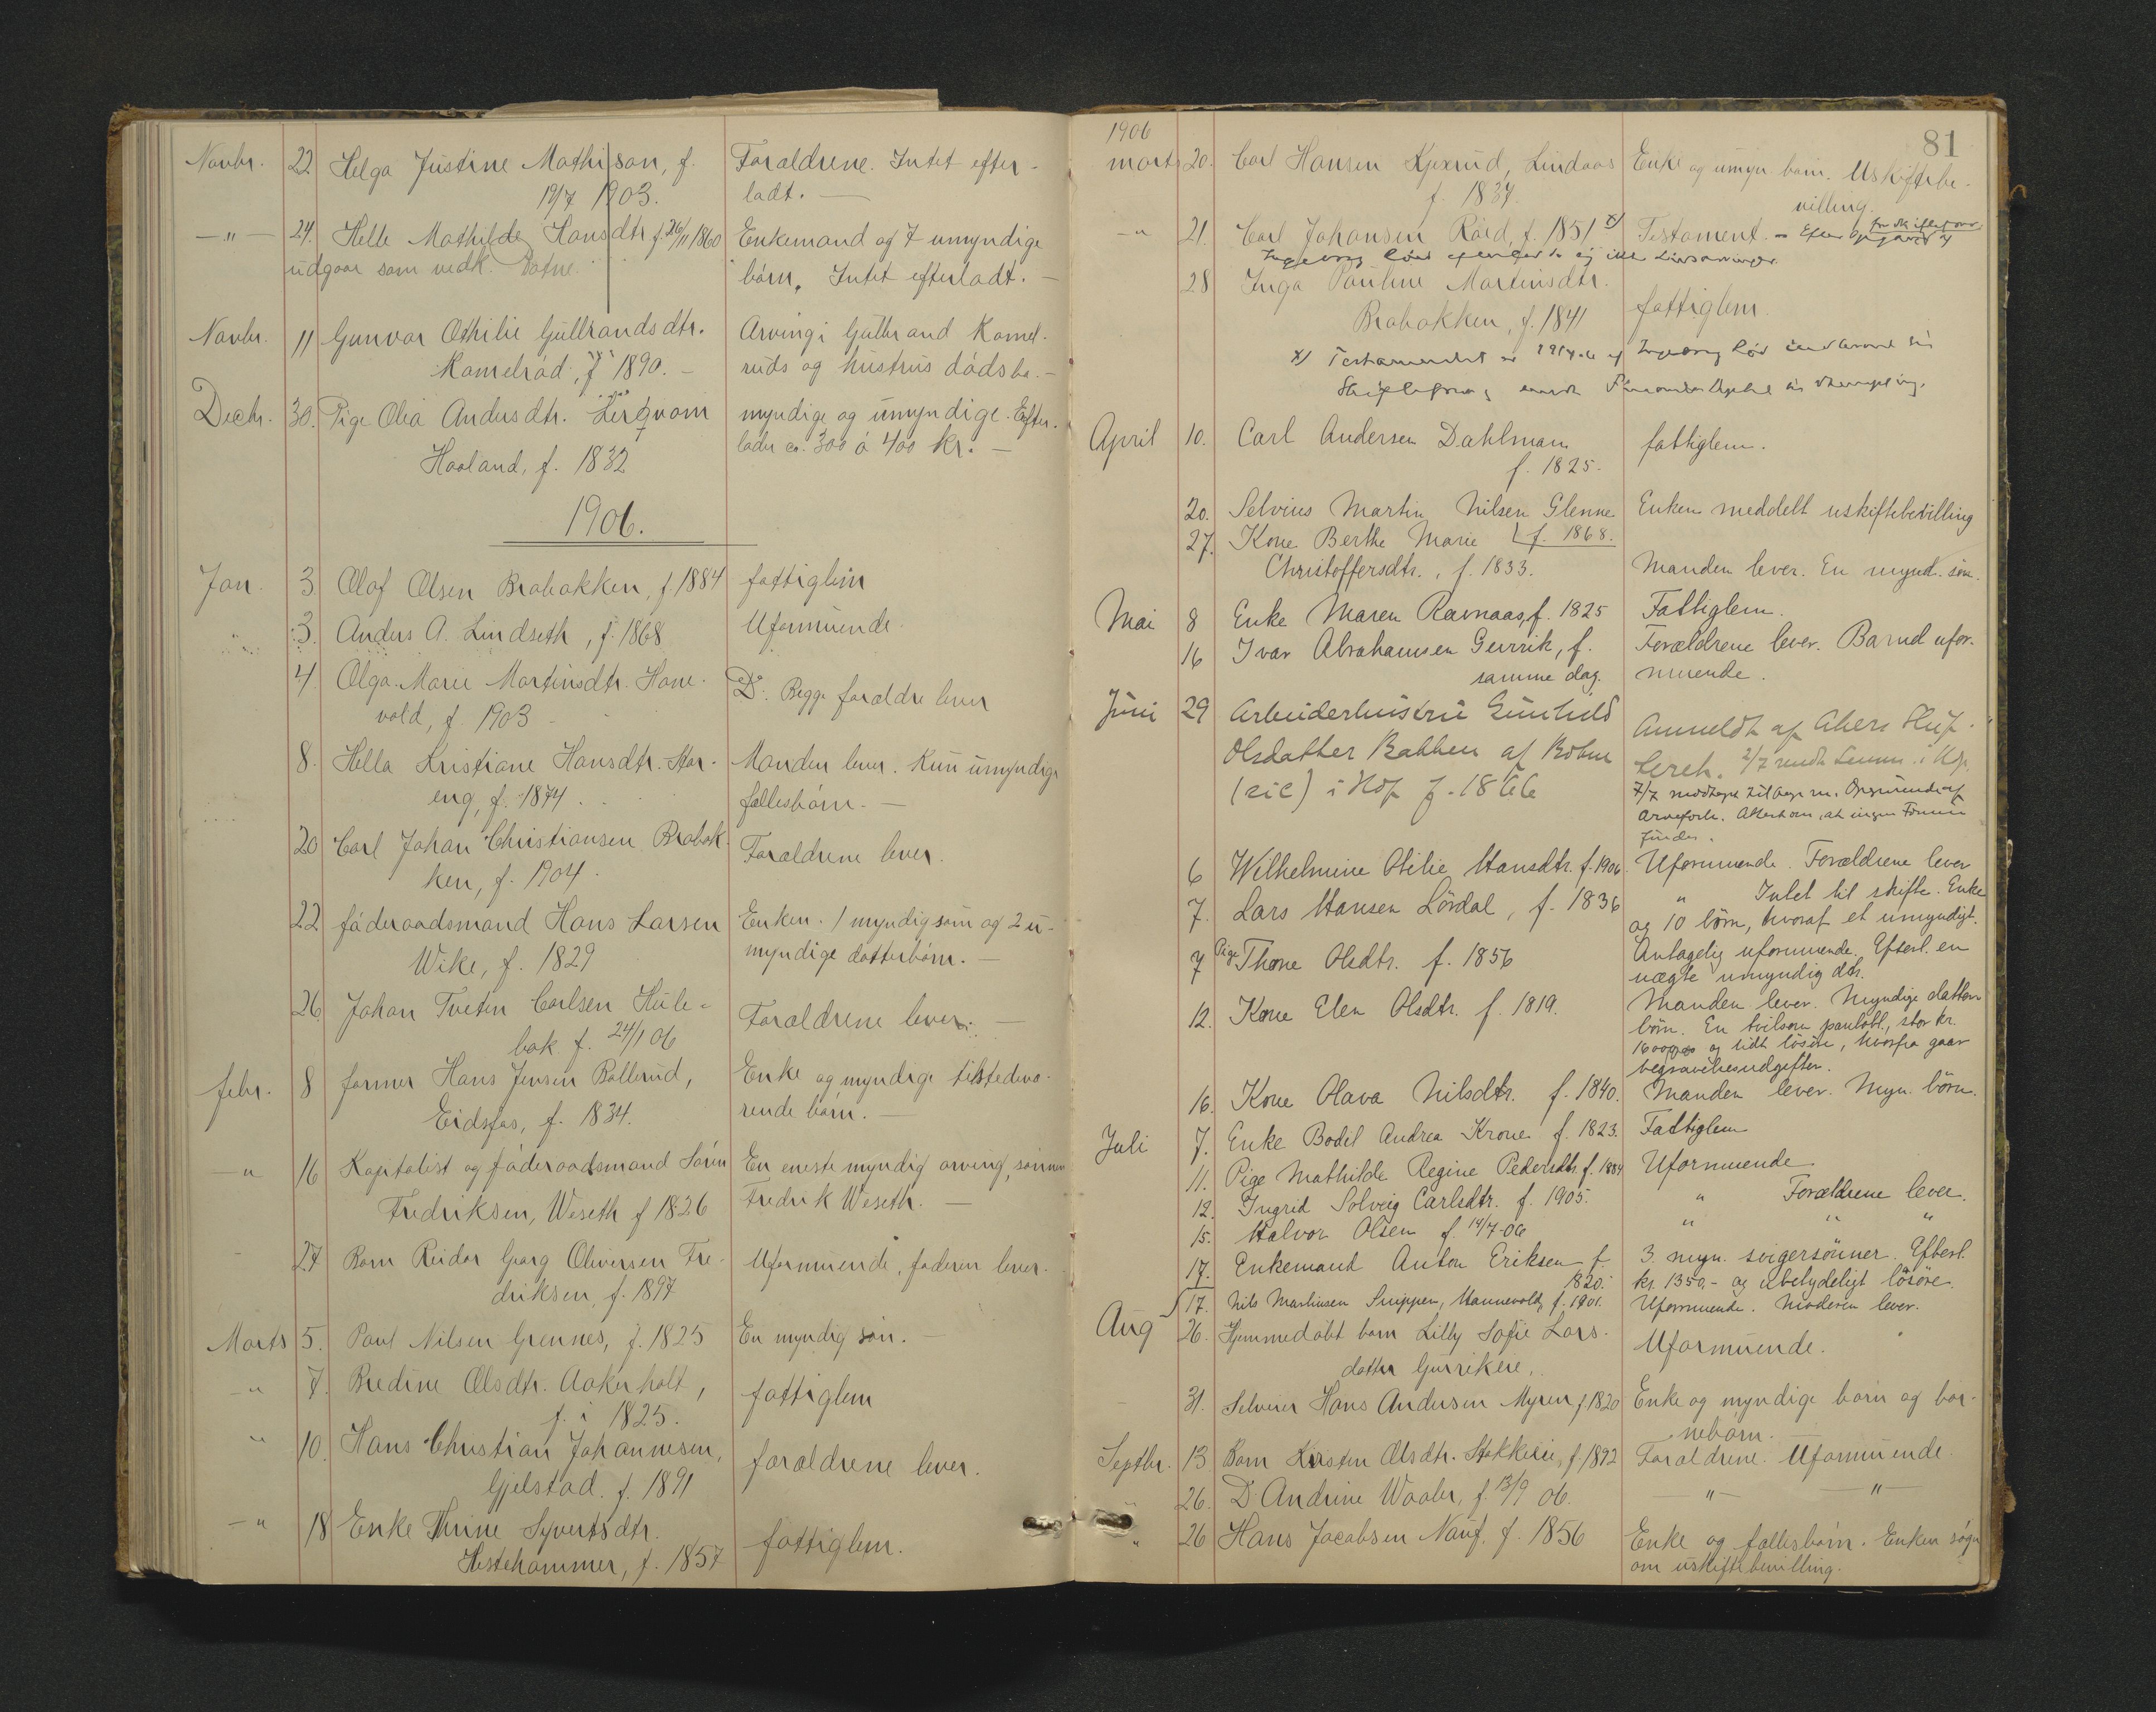 Novbr. 22 Helga Justine Mathison, f. Forældrene. Intet efter-
19/7 1903. ladt. —
—"— 24. Helle Mathilde Hansdtr f. 26/11 1860 Enkemand og 7 umyndige
udgaar som vedk. Botne børn. Intet efterladt. —
Novbr. 11 Gunvor Othilie Gulbrandsdtr. Arving i Gulbrand Komel-
Komelrød, f. 1890. — ruds og hustrus dødsbo. —
Decbr. 30. Pige Olea Andersdtr. myndige og umyndige. Efter-
Haaland, f. 1832 lader ca. 300 à 400 kr. —
1906.
Jan. 3 Olof Olsen Brabakken, f. 1884 fattiglem
" 3. Anders A. Lindseth, f. 1868 Uformuende.
4. Olga Marie Martinsdtr. Hane- Do. Begge forældre lever
vold, f. 1903
8. Hella Kristiane Hansdtr. Stor- Manden lever. Kun umyndige
eng, f. 1874 fællesbørn. —
20 Carl Johan Christiansen Brabak- Forældrene lever.
ken, f. 1904
22 føderaadsmand Hans Larsen Enken. 1 myndig søn og 2 u-
Wike, f. 1829 myndige datterbørn. —
26 Johan Tveten Carlsen Hule- Forældrene lever. —
bak f. 24/1 06
febr. 8 former Hans Jensen Bollerud, Enke og myndige tilstedevæ-
Eidsfos, f. 1834. rende børn. —
—" 16 Kapitalist og føderaadsmand Sören En eneste myndig arving, sönnen
Fredriksen, Weseth f 1826 Fredrik Weseth. —
27 Barn Reidar Georg Oliversen Fre- Uformuende, faderen lever.
driksen, f. 1897
Marts 5. Paul Nilsen Grennes, f. 1825 En myndig søn. —
—" 7. Bredine Olsdtr. Aakerholt, fattiglem
f. i 1825.
" 10. Hans Christian Johannesen, forældrene lever.
Gjelstad. f. 1891
—" 18 Enke Thrine Syvertsdtr. fattiglem.
Hestehammer, f. 1857
81
1906
marts 20. Carl Hansen Kjærud, Lindaas Enke og umyn. børn. Uskiftebe-
f. 1837. villing.
—" 21. Carl Johansen Röed, f. 1851 x) Testament. – Efter
Ingeborg
28 Inga Pauline Martinsdtr.
Brabakken, f. 1841 fattiglem.
x) Testamentet er af Ingeborg Röd
April 10. Carl Andersen Dahlman fattiglem.
f. 1825.
20. Selveier Martin Nilsen Glenne Enken meddelt uskiftebevilling
f. 1868.
27. Kone Berthe Marie
Christoffersdtr., f. 1833. Manden lever. En mynd. sön.
Mai 8 Enke Maren Ravnaas, f. 1825 Fattiglem.
16 Ivar Abrahamsen Gurrik, f. Forældrene lever. Barnet ufor-
samme dag. muende.
Juni 29 Arbeiderhustru Gunhild Anmeldt af Akers Skif-
Olsdatter Bakken af Botne teret. 2/7 sendt
(sic) i Hof f. 1866 7/7 modtaget tilbage m.
at ingen Formue
findes.
6 Wilhelmine Otilie Hansdtr. f. 1906 Uformuende. Forældrene lever
7. Lars Hansen Lördal, f. 1836 " Intet til skifte. Enke
og 10 börn, hvoraf et umyndigt.
7 Pige Thone Olsdtr. f. 1856 Antagelig uformuende. Efterl. en
uægte umyndig dtr.
12. Kone Elen Olsdtr. f. 1819. Manden lever. Myndige datter-
börn. En tvilsom panteobl., stor kr.
1600,00 og lidt lösöre, hvorfra gaar
begravelsesudgifter.
16. Kone Olava Nilsdtr. f. 1840. Manden lever. Myn. börn.
Juli 7. Enke Bodil Andrea Krone f. 1823. Fattiglem
11. Pige Mathilde Regine Pedersdtr. f. 1884 Uformuende
12. Ingrid Solveig Carlsdtr. f. 1905. " Forældrene lever.
15. Halvor Olsen f. 14/7-06 " " "
17. Enkemand Anton Eriksen f. 3 myn. svigersönner. Efterl.
1820. kr. 1350,- og ubetydeligt lösöre.
17. Nils Martinsen Snippen, Hannevold, f. 1901. Uformuende. Moderen lever.
Aug 26. Hjemmedøbt barn Lilly Sofie Lars- Uformuende.
datter Gurrikeie.
31. Selveier Hans Andersen Myren f 1820 Enke og myndige børn og bør-
nebørn.
Septbr. 13 Barn Kirsten Olsdtr. Stokkeeie, f. 1892 Forældrene. Uformuende.
26. Do Andrine Waaler, f. 13/9 06. —"— —"—
" 26 Hans Jacobsen Nauf. f. 1856 Enke og fællesbørn. Enken søgt
om uskiftebevilling.